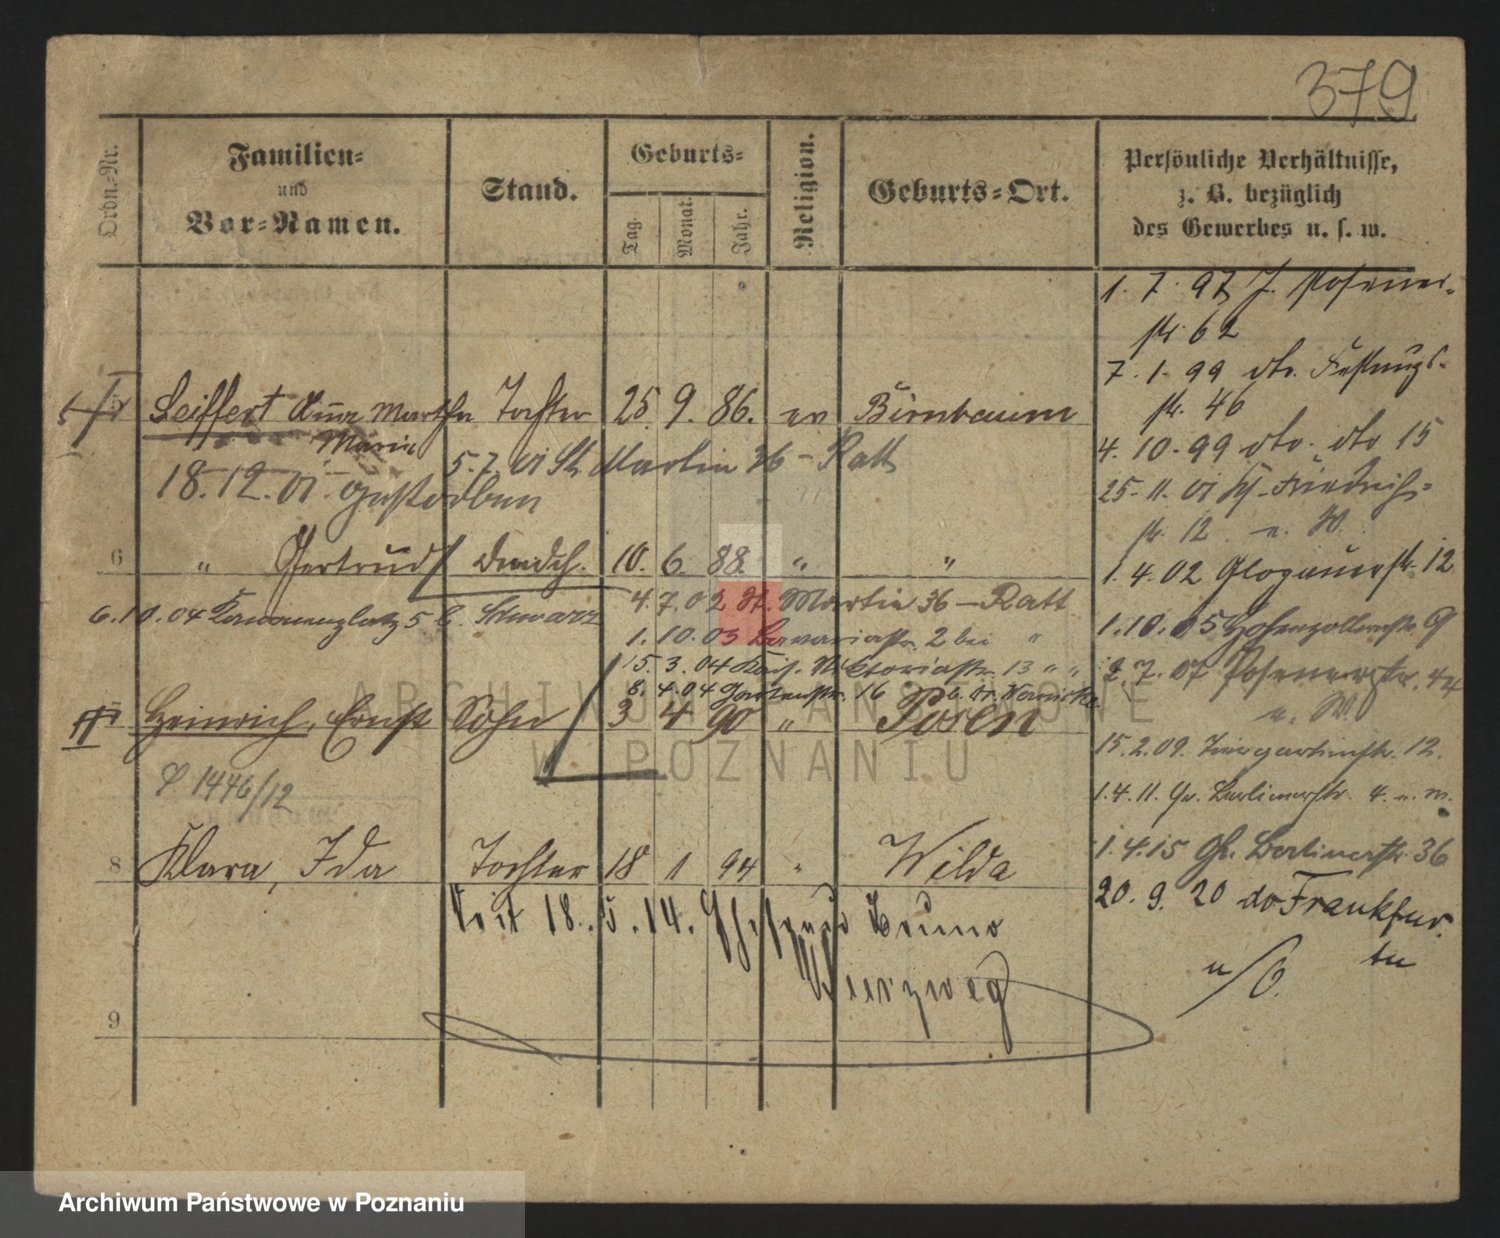 379
Ordn.-Nr.
Familien-
und
Vor-Namen.
Stand.
Geburts-
Tag.
Monat.
Jahr.
Religion.
Geburts-Ort.
Persönliche Verhältnisse,
z. B. bezüglich
des Gewerbes u. s. w.
1. 7. 97 J. Posener-
str. 62
7. 1. 99 dto. Festungs-
str. 46
5 Seiffert Anna Martha Tochter 25. 9. 86. ev Birnbaum
Marie
4. 10. 99 dto. dto 15
5. 7. 01 St. Martin 36 - Ratt
18. 12. 01. gestorben
25. 11. 01 Friedrich-
str. 12 u. W.
6 " Gertrud 10. 6. 88. " "
1. 4. 02 Glogauerstr. 12
4. 7. 02 St. Martin 36 - Ratt
6. 10. 04 5 b. Schwarz
1. 10. 05 Hohenzollernstr. 9
1. 10. 03 2 bei "
15. 3. 04 Kais. Viktoriastr. 13 " "
2. 7. 07 Posenerstr. 44
u. W
8. 4. 04 Gartenstr. 16 b.
7 Heinrich, Ernst Sohn 3 4 90 " Posen
15. 2. 09. Tiergartenstr. 12.
1446/12
1. 4. 11. Gr. Berlinerstr. 4. u. W.
8 Klara, Ida Tochter 18 1 94 " Wilda
1. 4. 15 Gr. Berlinerstr. 36
Seit 18. 5. 14. Ehefrau Bruno
20. 9. 20 do Frankfur
tu
u/O.
9
ARCHIWUM PAŃSTWOWE
W POZNANIU
Archiwum Państwowe w Poznaniu